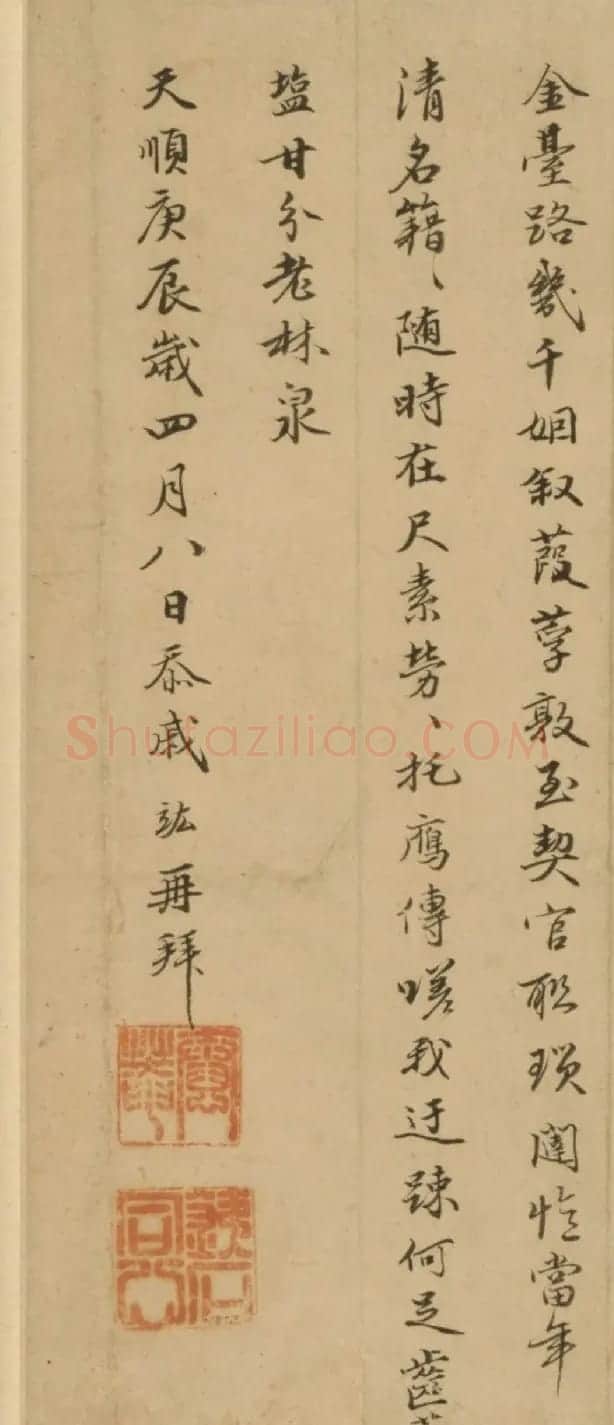 金臺路幾千姻叙葭莩敦至契官聯瑣闥憶當年
清名籍〻随時在尺素勞〻托鴈傳嗟我迂踈何足齒
塩甘分老林泉
天順庚辰歲四月八日忝戚竑再拜
Shufaziliao.COM